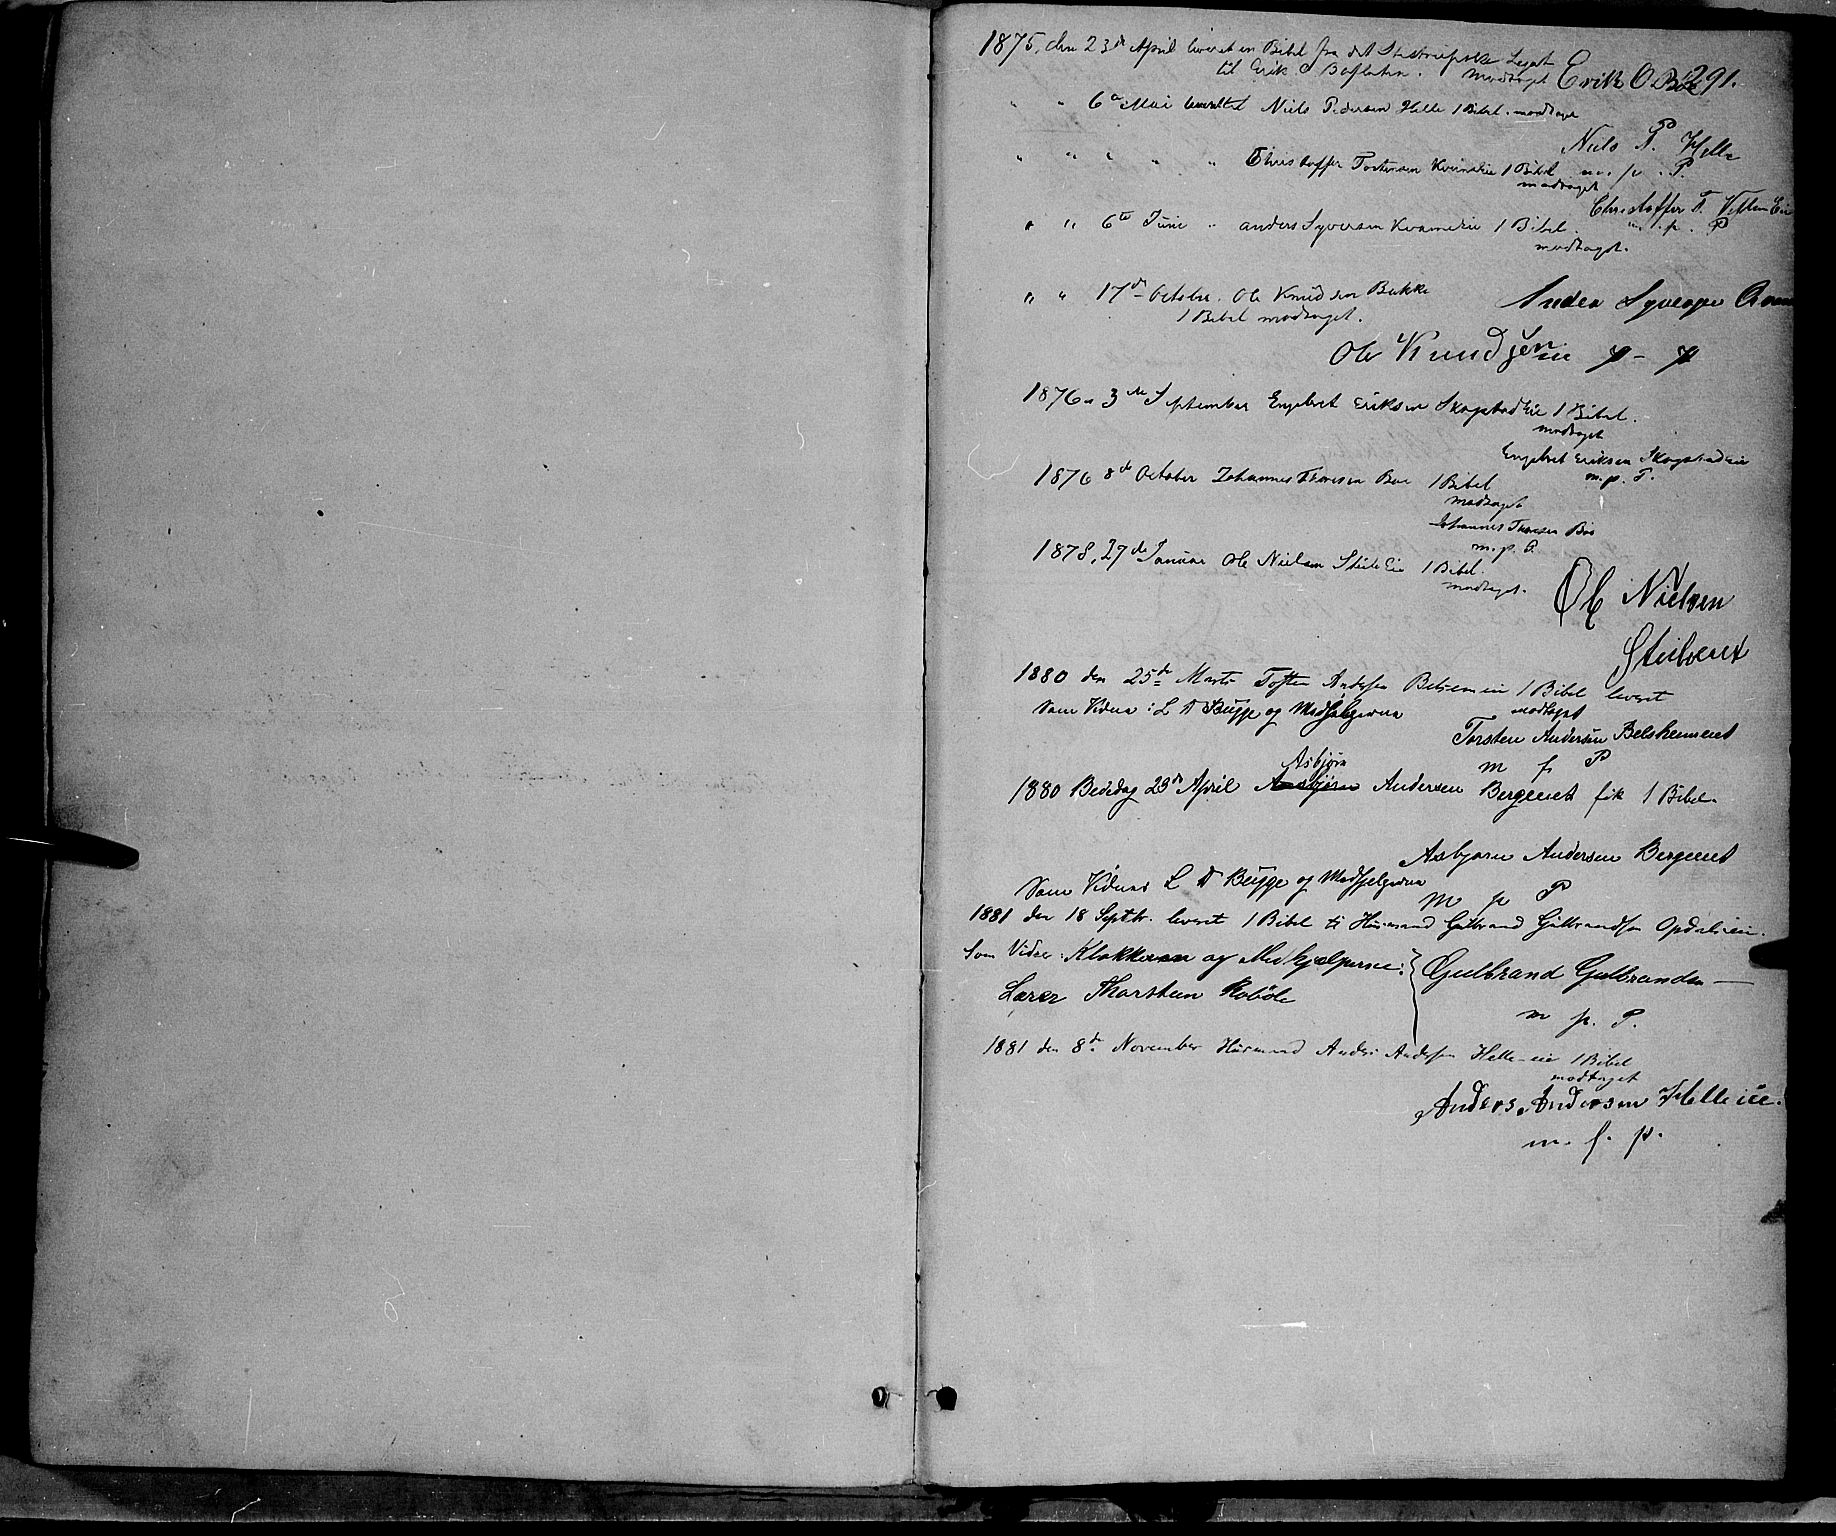 1875, den 23de April leveret en Bibel fra det Legat
til Erik O Bøflaten. modtaget Erik O Bøe 291.
" " 6te Mai leveret Niels Pedersen Helle 1 Bibel. modtaget
Niels P. Helle
m. p. P.
" " " " " Christoffer Tostensen 1 Bibel
modtaget
Christoffer T.
m. p. P
" " 6te Juni " Anders Syversen Kvameeie 1 Bibel.
modtaget.
" " 17de October. Ole Knudsen Bakke
1 Bibel modtaget.
Ole Knudsen
1876 3de September Engebret Eriksen Skogstadeie 1 Bibel.
modtaget
Engebret Eriksen Skogstadeie
m. p. P.
1876 8de October Johannes Thoresen Boe 1 Bibel
modtaget
Johannes Thoresen Boe
m. p. P.
1878, 27de Januar Ole Nielsen Steileeie 1 Bibel.
modtaget.
Ole Nielsen
1880 den 25de Marts Tosten Andersen 1 Bibel leveret
modtaget
Som Vidne: L D Bugge og Medhjælperne
Torsten Andersen Belsheimeiet
m f P
Asbjørn
1880 Bededag 23de April Ansbjørn Andersen Bergeeiet fik 1 Bibel.
Asbjørn Andersen Bergeeiet
Som Vidner L D Bugge og Medhjelperne
m p P
1881 den 18 Septbr. leveret 1 Bibel til Husmand Gulbrand Gulbrandsen Opdalseie.
Som Vidne: Klokkeren og Medhjælperne:
Gulbrand Gulbrandsen
Lærer Thorstein Robøle
m p. P.
1881 den 8de November Husmand Anders Andersen Helle-eie 1 Bibel
modtaget
Anders Andersen Helleeie.
m. f. p.